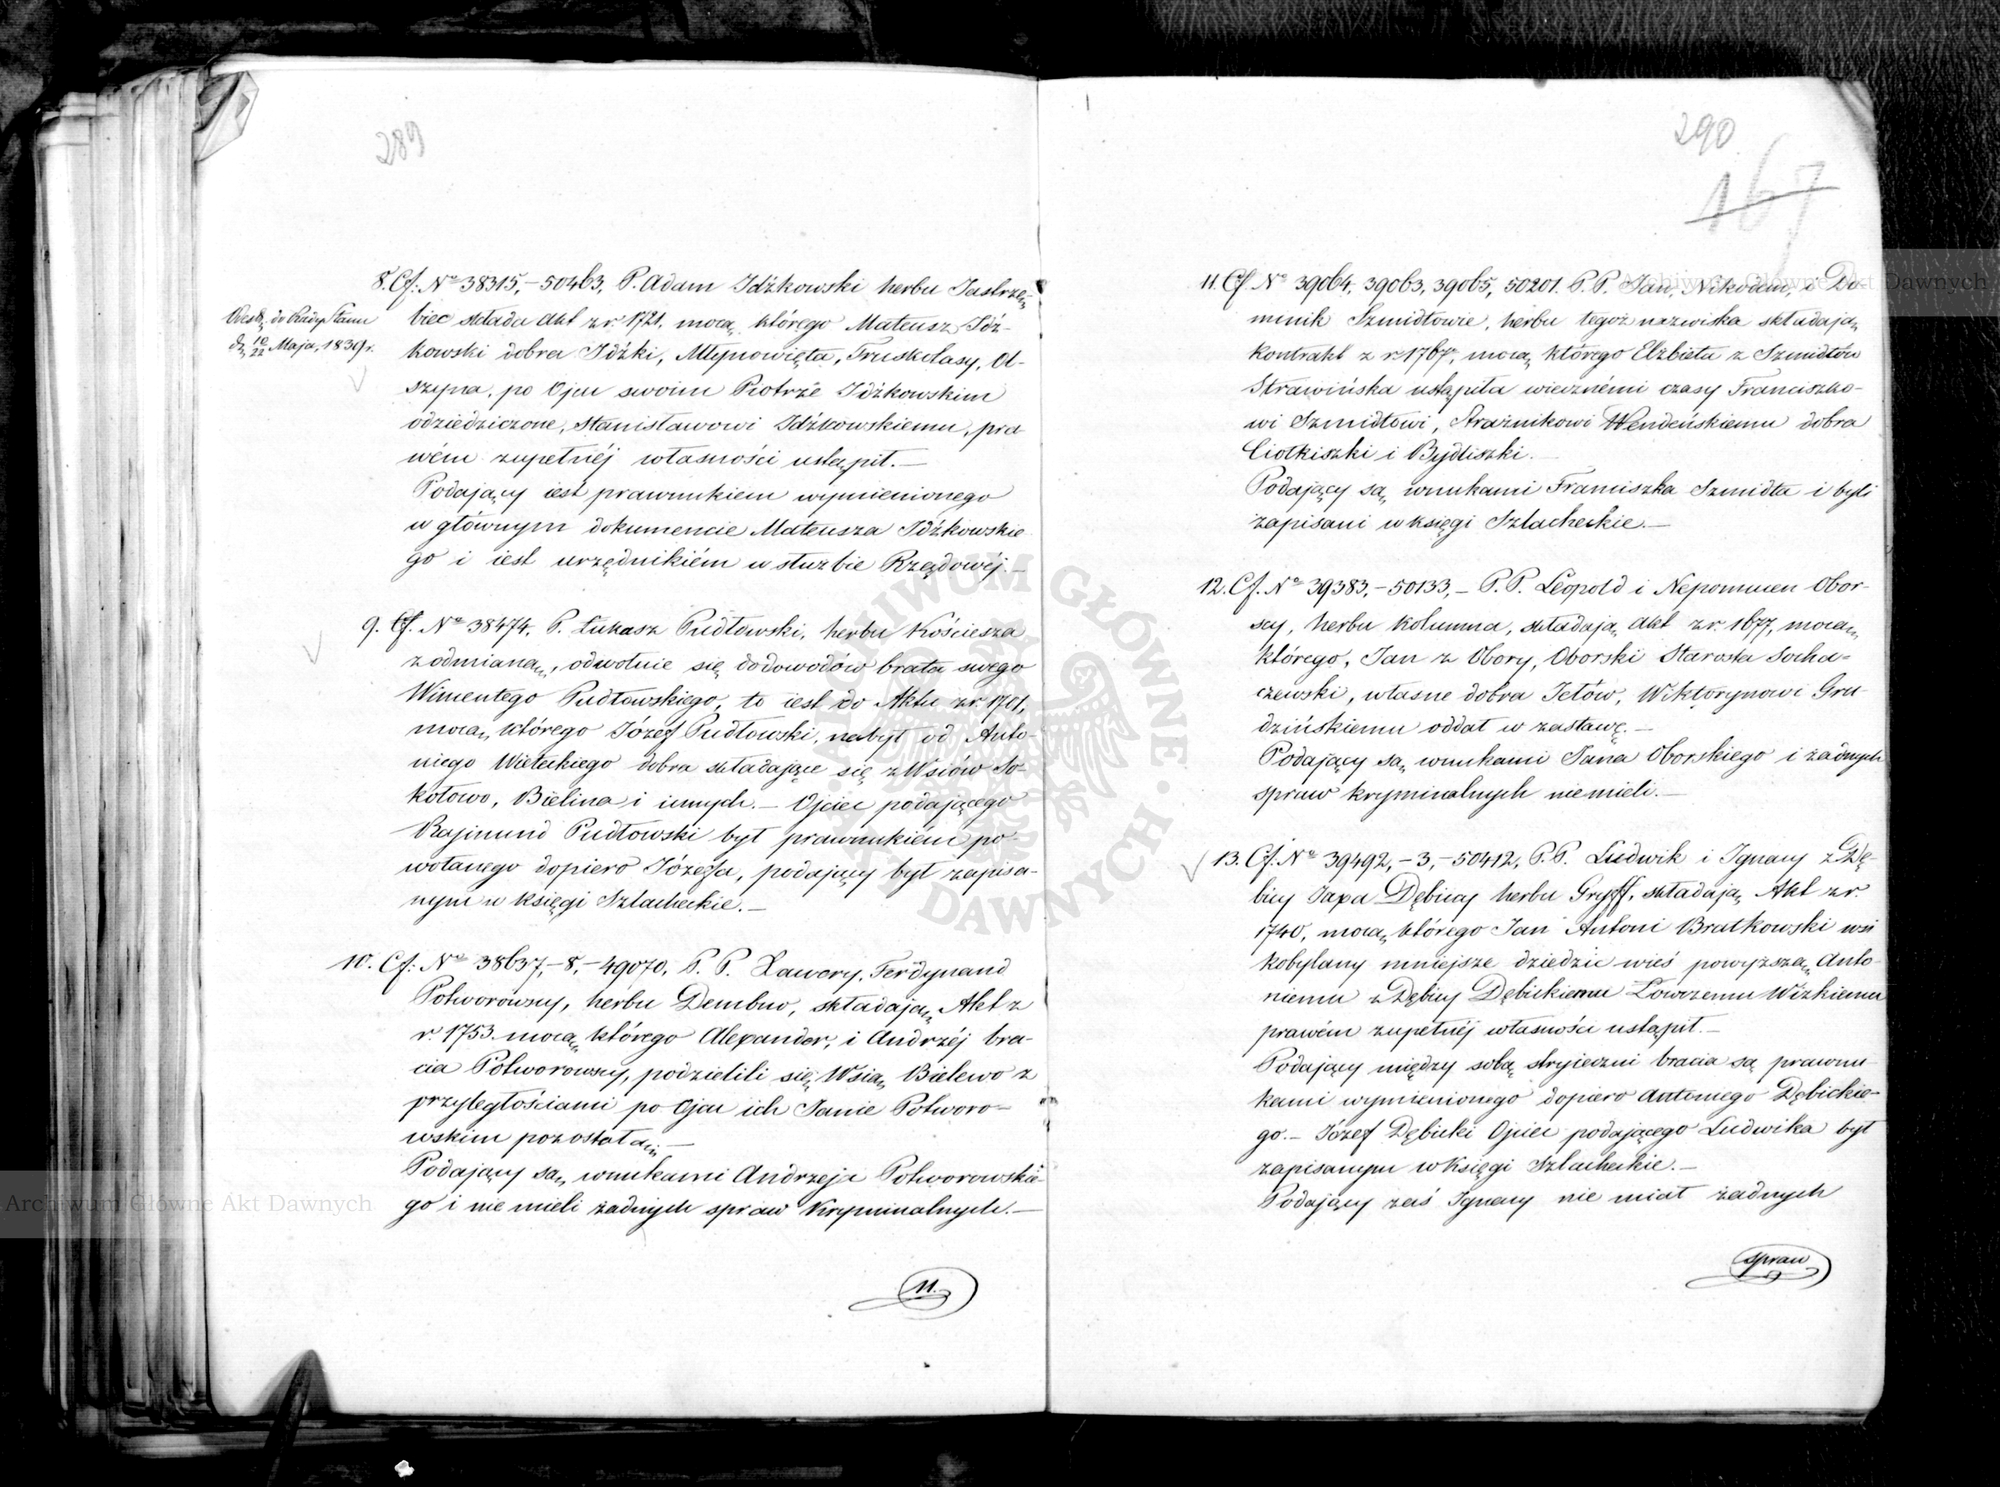 289
8. Cf. No 38315,-50463, P. Adam Idźkowski herbu Jastrzę-
biec składa Akt z r. 1721, mocą którego Mateusz Idź-
kowski dobra Idźki, Młynowięta, Truskolasy, Ol-
szyna, po Ojcu swoim Piotrze Idźkowskim
odziedziczone, Stanisławowi Idźkowskiemu, pra-
wém zupełnéj własności ustąpił.—
Podający iest prawnukiem wymienionego
w głównym dokumencie Mateusza Idźkowskie
go i iest urzędnikiém w służbie Rządowéj.—
do Rady Stanu
d. 10/22 Maja, 1839 r.
9. Cf. No 38474, P. Łukasz Pudłowski, herbu Kościesza
z odmianą, odwołuie się do dowodów brata swego
Wincentego Pudłowskiego, to iest do Aktu z r. 1701,
mocą którego Józef Pudłowski, nabył od Anto-
niego Wieteckiego dobra składające się z Wsiów So-
kołowo, Bielina i innych.— Ojciec podającego
Rajmund Pudłowski był prawnukiém po-
wołanego dopiero Józefa, podający był zapisa-
nym w księgi Szlacheckie.—
10. Cf. No 38637,-8,-49070, P. P. Xawery, Ferdynand
Potworowscy, herbu Dembno, składają Akt z
r. 1753 mocą którego Alexander, i Andrzéj bra-
cia Potworowscy, podzielili się Wsią Bielewo z
przyległościami po Ojcu ich Janie Potworo-
wskim pozostałą.—
Podający są wnukami Andrzeja Potworowskie-
go i nie mieli żadnych spraw Kryminalnych.—
11.
290
167
11. Cf. No 39064, 39063, 39065, 50201. P. P. Jan, Nikodem, i Do-
minik Szmidtowie, herbu tegoż nazwiska składają
kontrakt z r. 1767, mocą którego Elżbieta z Szmidtów
Strawińska ustąpiła wiecznémi czasy Franciszko-
wi Szmidtowi, Strażnikowi Wendeńskiemu dobra
Ciotkiszki i Bydliszki.—
Podający są wnukami Franciszka Szmidta i byli
zapisani w księgi Szlacheckie.—
12. Cf. No 39383,-50133,- P. P. Leopold i Nepomucen Obor-
scy, herbu Kolumna, składają Akt z r. 1677, mocą
którego, Jan z Obory, Oborski Starosta Socha-
czewski, własne dobra Jetów, Wiktorynowi Gru-
dzińskiemu oddał w zastawę.—
Podający są wnukami Jana Oborskiego i żadnych
spraw kryminalnych nie mieli.—
13. Cf. No 39492,-3,-50412, P. P. Ludwik i Ignacy z Dę-
bicy Japa Dębiccy herbu Gryff, składają Akt z r.
1740, mocą którego Jan Antoni Bratkowski wsi
kobylany mniejsze dziedzic wieś powyższą Anto-
niemu z Dębicy Dębickiemu Łowczemu Wizkiemu
prawém zupełnéj własności ustąpił.—
Podający między sobą stryieczni bracia są prawnu
kami wymienionego dopiero Antoniego Dębickie-
go.— Józef Dębicki Ojciec podającego Ludwika był
zapisanym w księgi Szlacheckie.—
Podający zaś Ignacy nie miał żadnych
spraw
Archiwum Główne Akt Dawnych
Archiwum Główne Akt Dawnych
ARCHIWUM GŁÓWNE AKT DAWNYCH